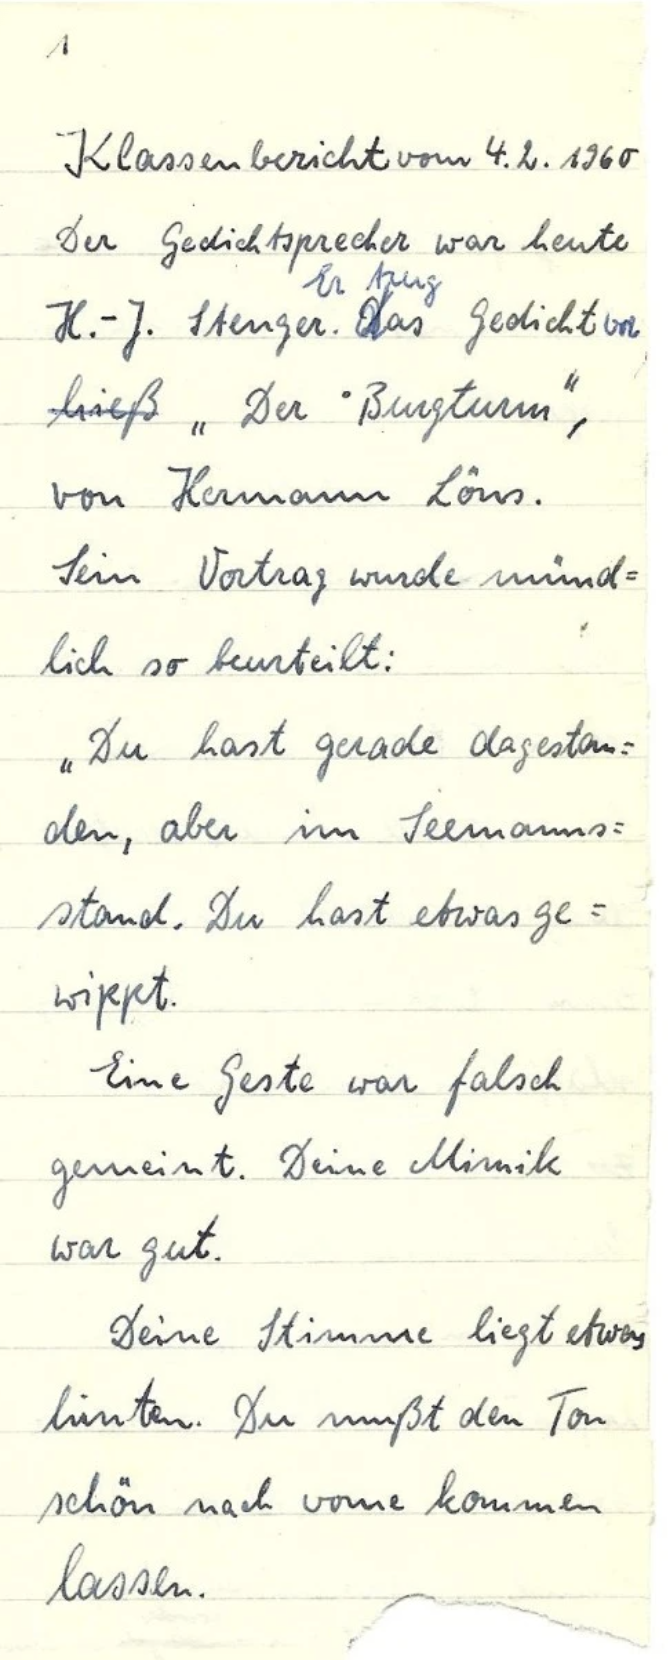 1
Klassenbericht vom 4.2. 1960
Der Gedichtsprecher war heute
Er trug
H.-J. Stenger. das Gedicht vor
hieß „Der Burgturm",
von Hermann Löns.
Sein Vortrag wurde münd=
lich so beurteilt:
„Du hast gerade dagestan=
den, aber im Seemanns=
stand. Du hast etwas ge=
wippt.
Eine Geste war falsch
gemeint. Deine Mimik
war gut.
Deine Stimme liegt etwas
hinten. Du mußt den Ton
schön nach vorne kommen
lassen.